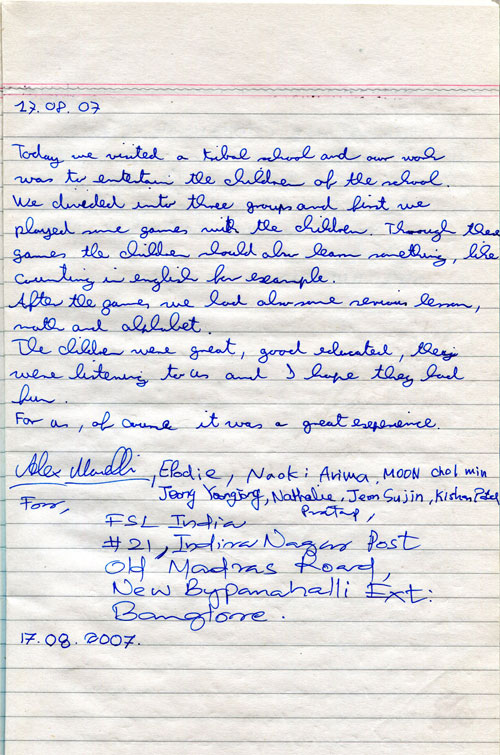 17.08.07
Today we visited a tribal school and our work
was to entertain the children of the school.
We divided into three groups and first we
played some games with the children. Through these
games the children should also learn something, like
counting in english for example.
After the games we had also some serious lesson,
math and alphabet.
The children were great, good educated, they
were listening to us and I hope they had
fun.
For us, of course it was a great experience.
Alex, Elodie, Naoki Arima, MOON chol min
Jeong Yongjong, Nathalie, Jeon Sujin, Kishan Patel
Pratap,
For,
FSL India
#21, Indira Nagar Post
Old Madras Road,
New Bypanahalli Ext:
Banglore.
17.08.2007.